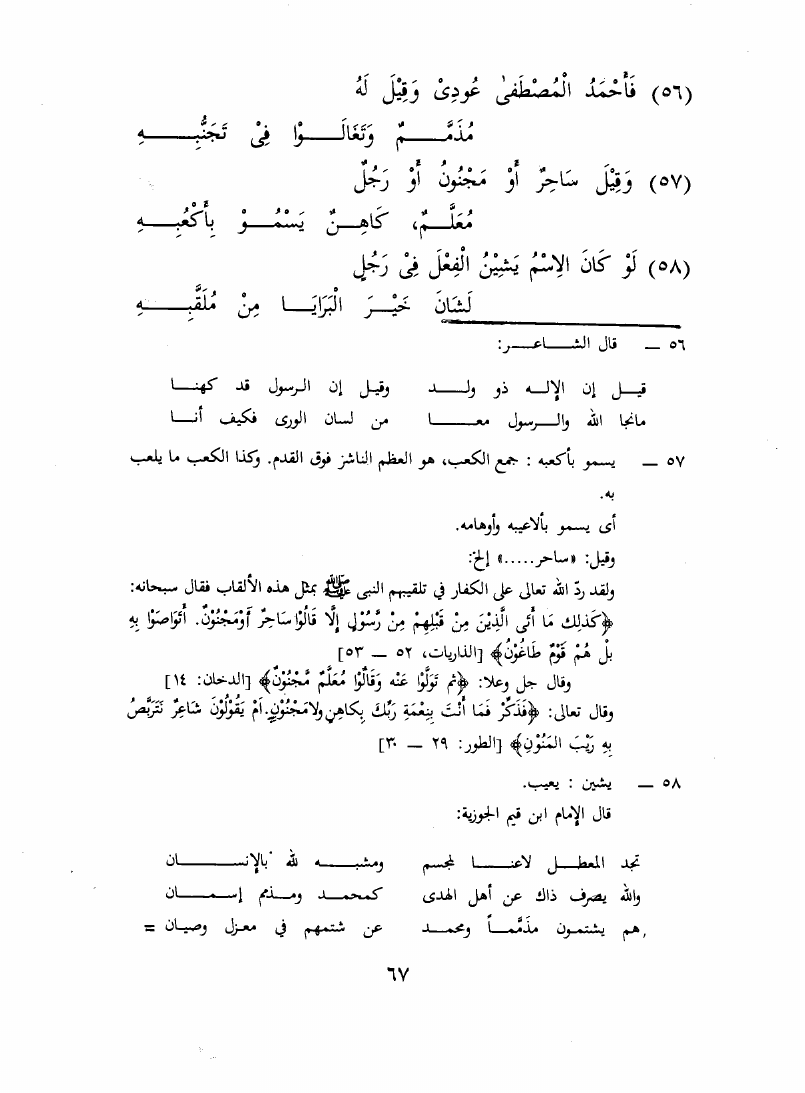 (٥٦) فَأَحْمَدُ الْمُصْطَفىٰ عُودِىْ وَقِيْلَ لَهُ
مُذَمَّمٌ وَتَغَالَوْا فِىْ تَجَنُّبِهِ
(٥٧) وَقِيْلَ سَاحِرٌ أَوْ مَجْنُونٌ أَوْ رَجُلٌ
مُعَلَّمٌ، كَاهِنٌ يَسْمُوْ بِأَكْعُبِهِ
(٥٨) لَوْ كَانَ الِاسْمُ يَشِيْنُ الْفِعْلَ فِىْ رَجُلٍ
لَشَانَ خَيْرَ الْبَرَايَا مِنْ مُلَقَّبِهِ
٥٦ — قال الشاعر:
قيل إن الإله ذو ولد وقيل إن الرسول قد كهنا
مانجا الله والرسول معا من لسان الورى فكيف أنا
٥٧ — يسمو بأكعبه : جمع الكعب، هو العظم الناشز فوق القدم. وكذا الكعب ما يلعب
به.
أى يسمو بألاعيبه وأوهامه.
وقيل: «ساحر.....» إلخ:
ولقد ردّ الله تعالى على الكفار في تلقيبهم النبى ﷺ بمثل هذه الألقاب فقال سبحانه:
﴿كَذلِك مَا أَتَى الَّذِيْنَ مِنْ قَبْلِهِمْ مِنْ رَّسُوْلٍ إِلَّا قَالُوْا سَاحِرٌ أَوْمَجْنُوْنٌ. أَتَوَاصَوْا بِهِ
بلْ هُمْ قَوْمٌ طَاغُوْنَ﴾ [الذاريات، ٥٢ — ٥٣]
وقال جل وعلا: ﴿ثم تَوَلَّوْا عَنْه وَقَالُوْا مُعَلَّمٌ مَّجْنُوْنٌ﴾ [الدخان: ١٤]
وقال تعالى: ﴿فَذَكِّرْ فَمَا أَنْتَ بِنِعْمَةِ رَبِّكَ بِكَاهِنٍ ولامَجْنُوْنٍ.أَمْ يَقُوْلُوْنَ شَاعِرٌ نَتَرَبَّصُ
بِهِ رَيْبَ المَنُوْنِ﴾ [الطور: ٢٩ — ٣٠]
٥٨ — يشين : يعيب.
قال الإمام ابن قيم الجوزية:
تجد المعطل لاعنا لمجسم ومشبه لله بالإنسان
والله يصرف ذاك عن أهل الهدى كمحمد ومذمم إسمان
هم يشتمون مذمَّماً ومحمد عن شتمهم في معزل وصيان =
٦٧